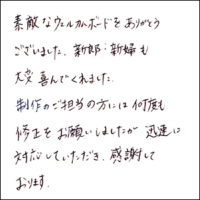 素敵なウェルカムボードをありがとう
ございました。新郎・新婦も
大変喜んでくれました。
制作のご担当の方には何度も
修正をお願いしましたが迅速に
対応していただき、感謝して
おります。